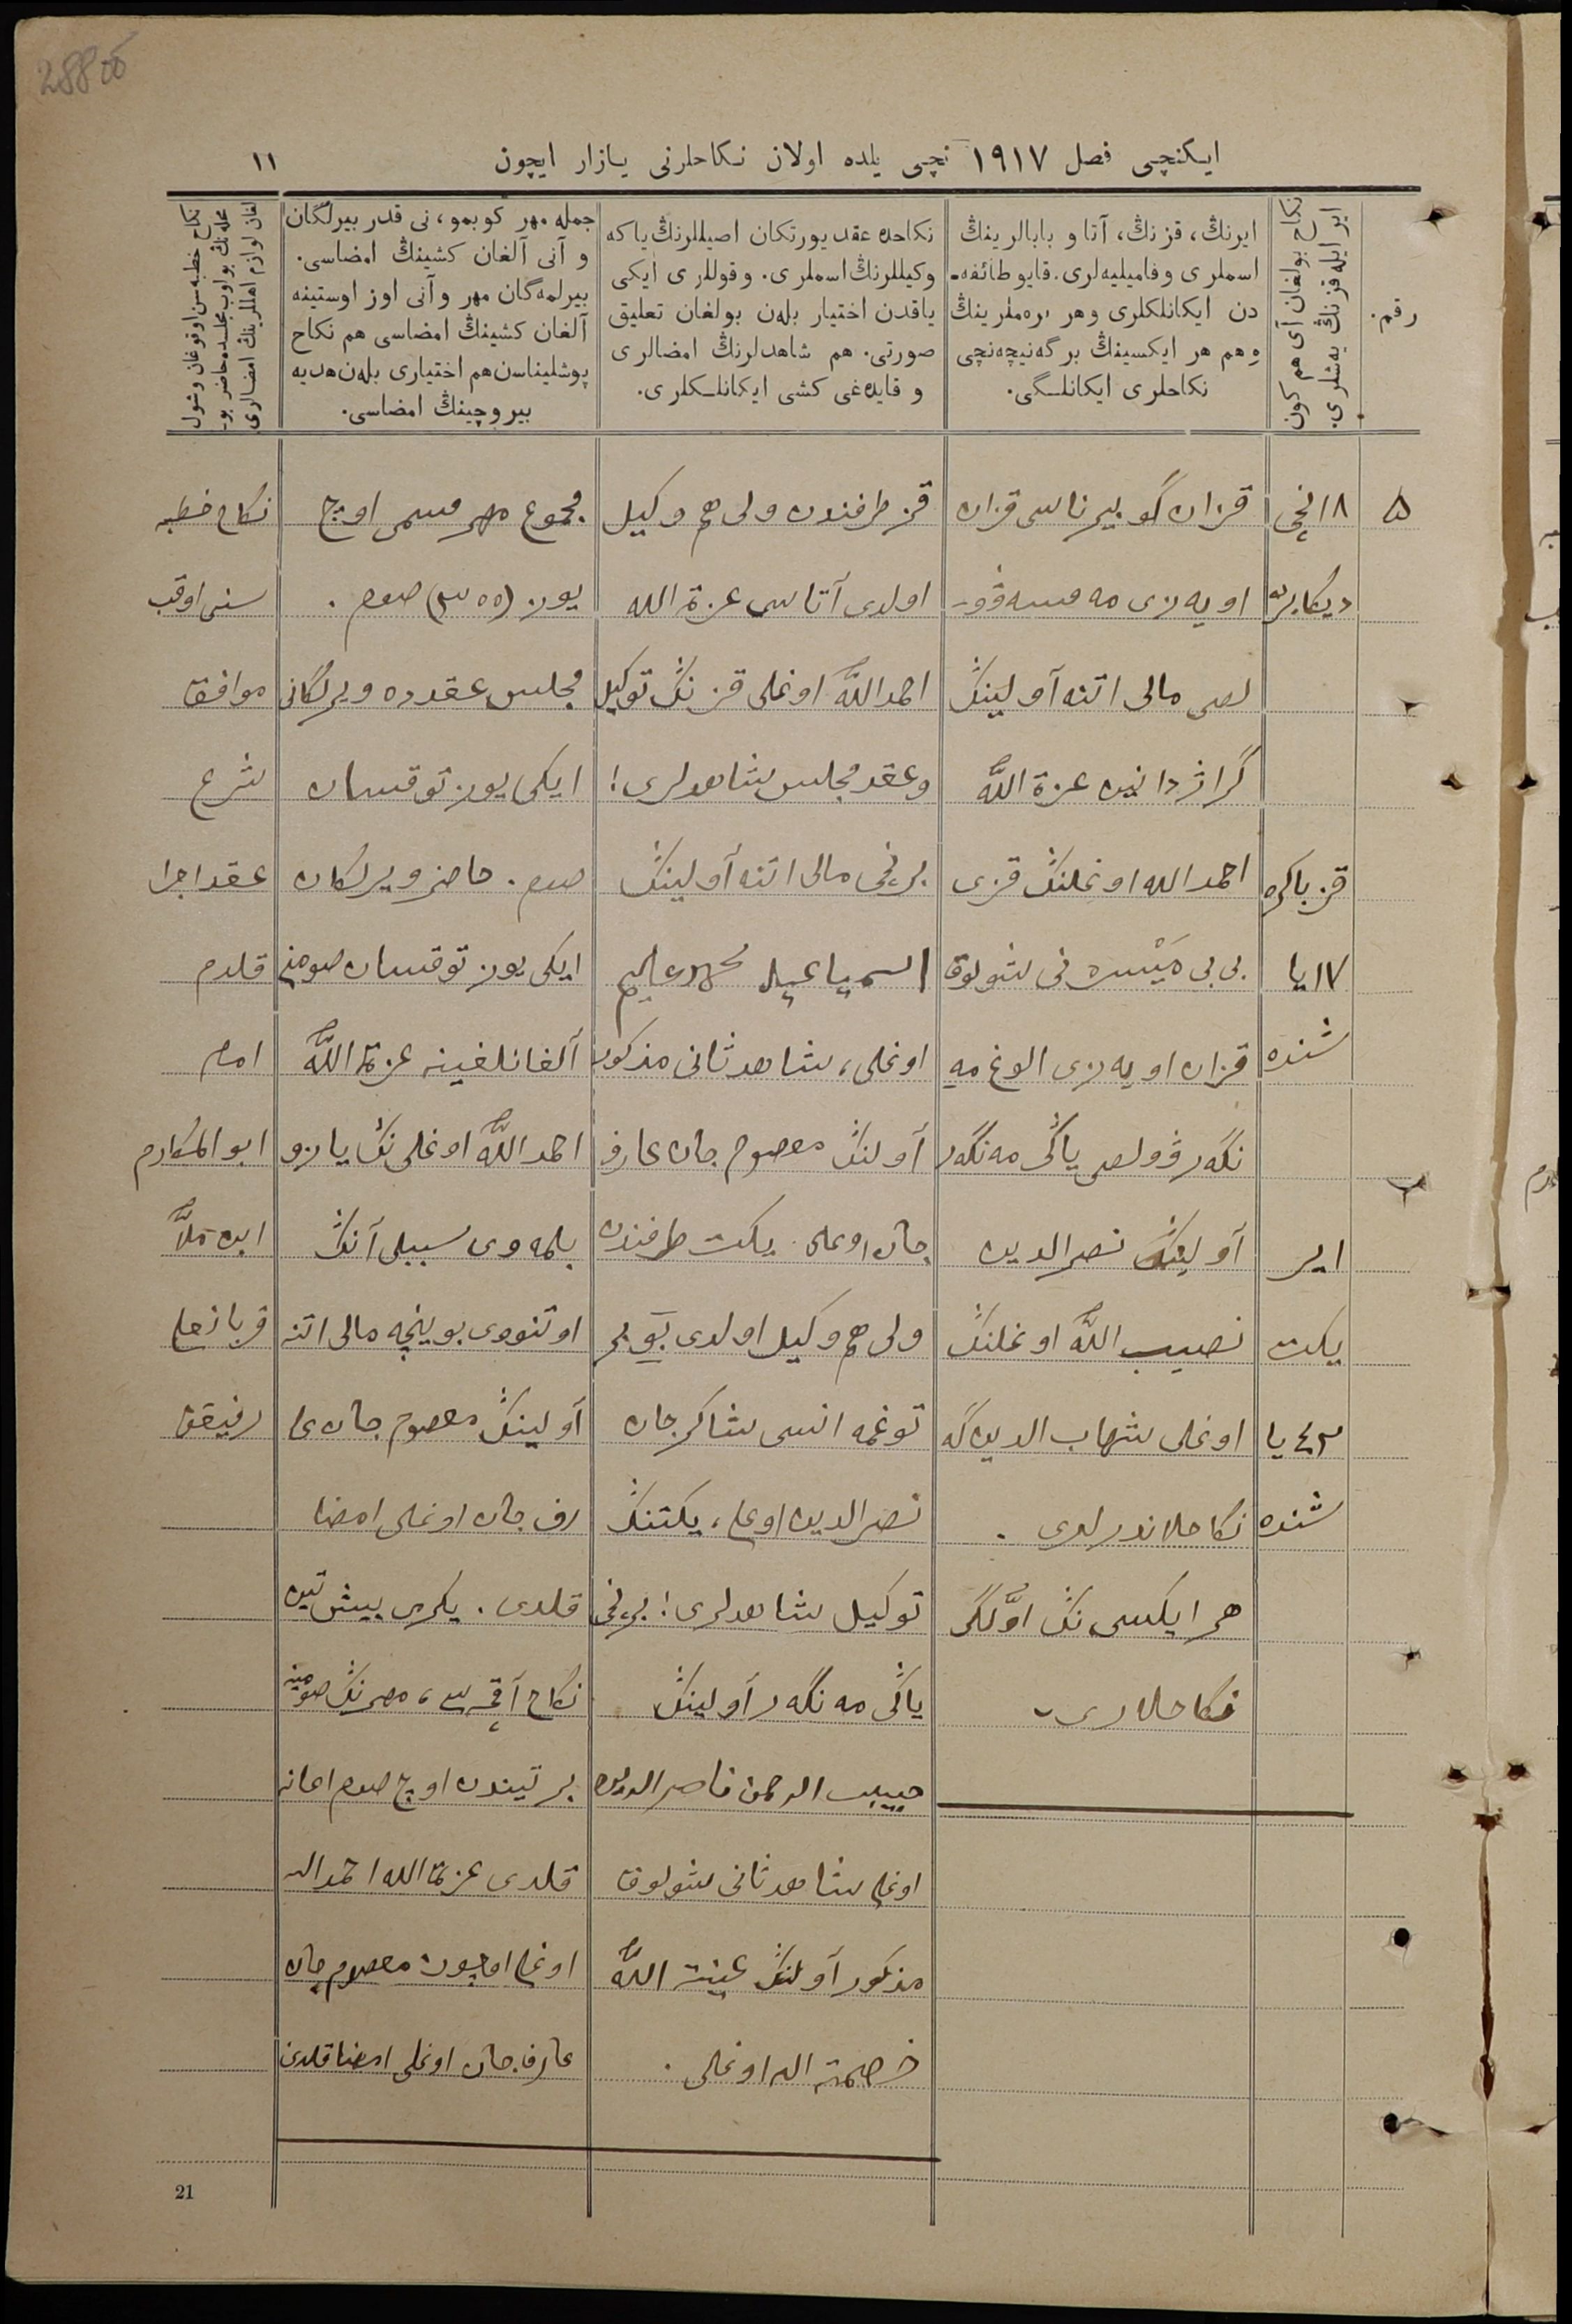 288 об
ایکنچی فصل ١٩١٧ نچی یلده اولان نکاحلرنی یازار ایچون
١١
رقم.
نکاح بولغان آی هم کون
ایر ایله قزنڭ یەشلری.
ایرنڭ، قزنڭ، آتا و بابالرینڭ
اسملری وفامیلیەلری. قایو طائفه‌
دن ایکانلکلری وهر برەملرینڭ
وهم هر ایکسینڭ برگه نیچەنچی
نکاحلری ایکانلگی.
نکاحده عقد یورتکان اصیللرنڭ یا که
وکیللرنڭ اسملری. وقوللری ایکی
یاقدن اختیار بلەن بولغان تعلیق
صورتی. هم شاهدلرنڭ امضالری
و قایدەغی کشی ایکانلکلری.
جمله مهر کوبمو، نی قدر بیرلگان
و آنی آلغان کشینڭ امضاسی.
بیرلمەگان مهر وآنی اوز اوستینه
آلغان کشینڭ امضاسی هم نکاح
پوشلیناسن هم اختیاری بلەن هدیه
بیروچینڭ امضاسی.
نکاح خطبەسن اوقوغان وشول
محلەنڭ بولوب مجلسده حاضر بو
لغان لوازم اهللرینڭ امضالری
٥
١٨ نچی
دیکابرده
قز باکره
١٧ یا
شنده
ایر
یکت
٤٣ یا
شنده
قزان گوبیرناسی قزان
اویەزی مەمسەقو
لصی مالی اتنه آولینڭ
گراژدانین عزة اللّٰه
احمد الله اوغلنڭ قزی
بی بی مَیْسره نی شولوق
قزان اویەزی الوغ مه
نگەر ڤولصی یاڭی مەنگەر
آولینڭ نصرالدین
نصیب اللّٰه اوغلنڭ
اوغلی شهاب الدین گه
نکاحلاندرلدی.
هر ایکسی نڭ اوّلگی
نکاحلاری
قز طرفندن ولی هم وکیل
اولدی آتاسی عزة الله
احمد اللّٰه اوغلی قزنڭ توکیل
وعقد مجلس شاهدلری:
برنچی مالی اتنه آولینڭ
اسمیاعیل محمدعلیم
اوغلی، شاهد ثانی مذکور
آولنڭ معصوم جان عارف
جان اوغلی. یکت طرفندن
ولی هم وکیل اولدی بر
توغمه انسی شاکر جان
نصرالدین اوغلی، یکتنڭ
توکیل شاهدلری: برنچی
یاڭی مەنگەر آولینڭ
حبیب الرحمن ناصرالدین
اوغلی شاهد ثانی شولوق
مذکور آولنڭ اللّٰه
الله اوغلی.
مجموع مهر مسمی اوچ
یوز (٣٠٠) صوم.
مجلس عقدده ویرلگانی
ایکی یوز توقسان
صوم. حاضر ویرلکان
ایکی یوز توقسان صومنی
آلغانلغینه عزة اللّٰه
احمد اللّٰه اوغلی نڭ یازو
بلمەوی سببلی آنڭ
اوتنووی بوینچه مالی اتنه
آولینڭ معصوم جان عا
رف جان اوغلی امضا
قلدی. یکرمی بیش تین
نکاح آقچەسی، مهرنڭ صومینه
بر تیندن اوچ صوم اعانه
قلدی عزة الله احمد الله
اوغلی اوچون معصوم جان
عارف جان اوغلی امضا قلدی
نکاح خطبه
سنی اوقب
موافق
شرع
عقد اجرا
قلدم
امام
ابو المکارم
ابن ملّا
قربانعلی
رفیقی
21